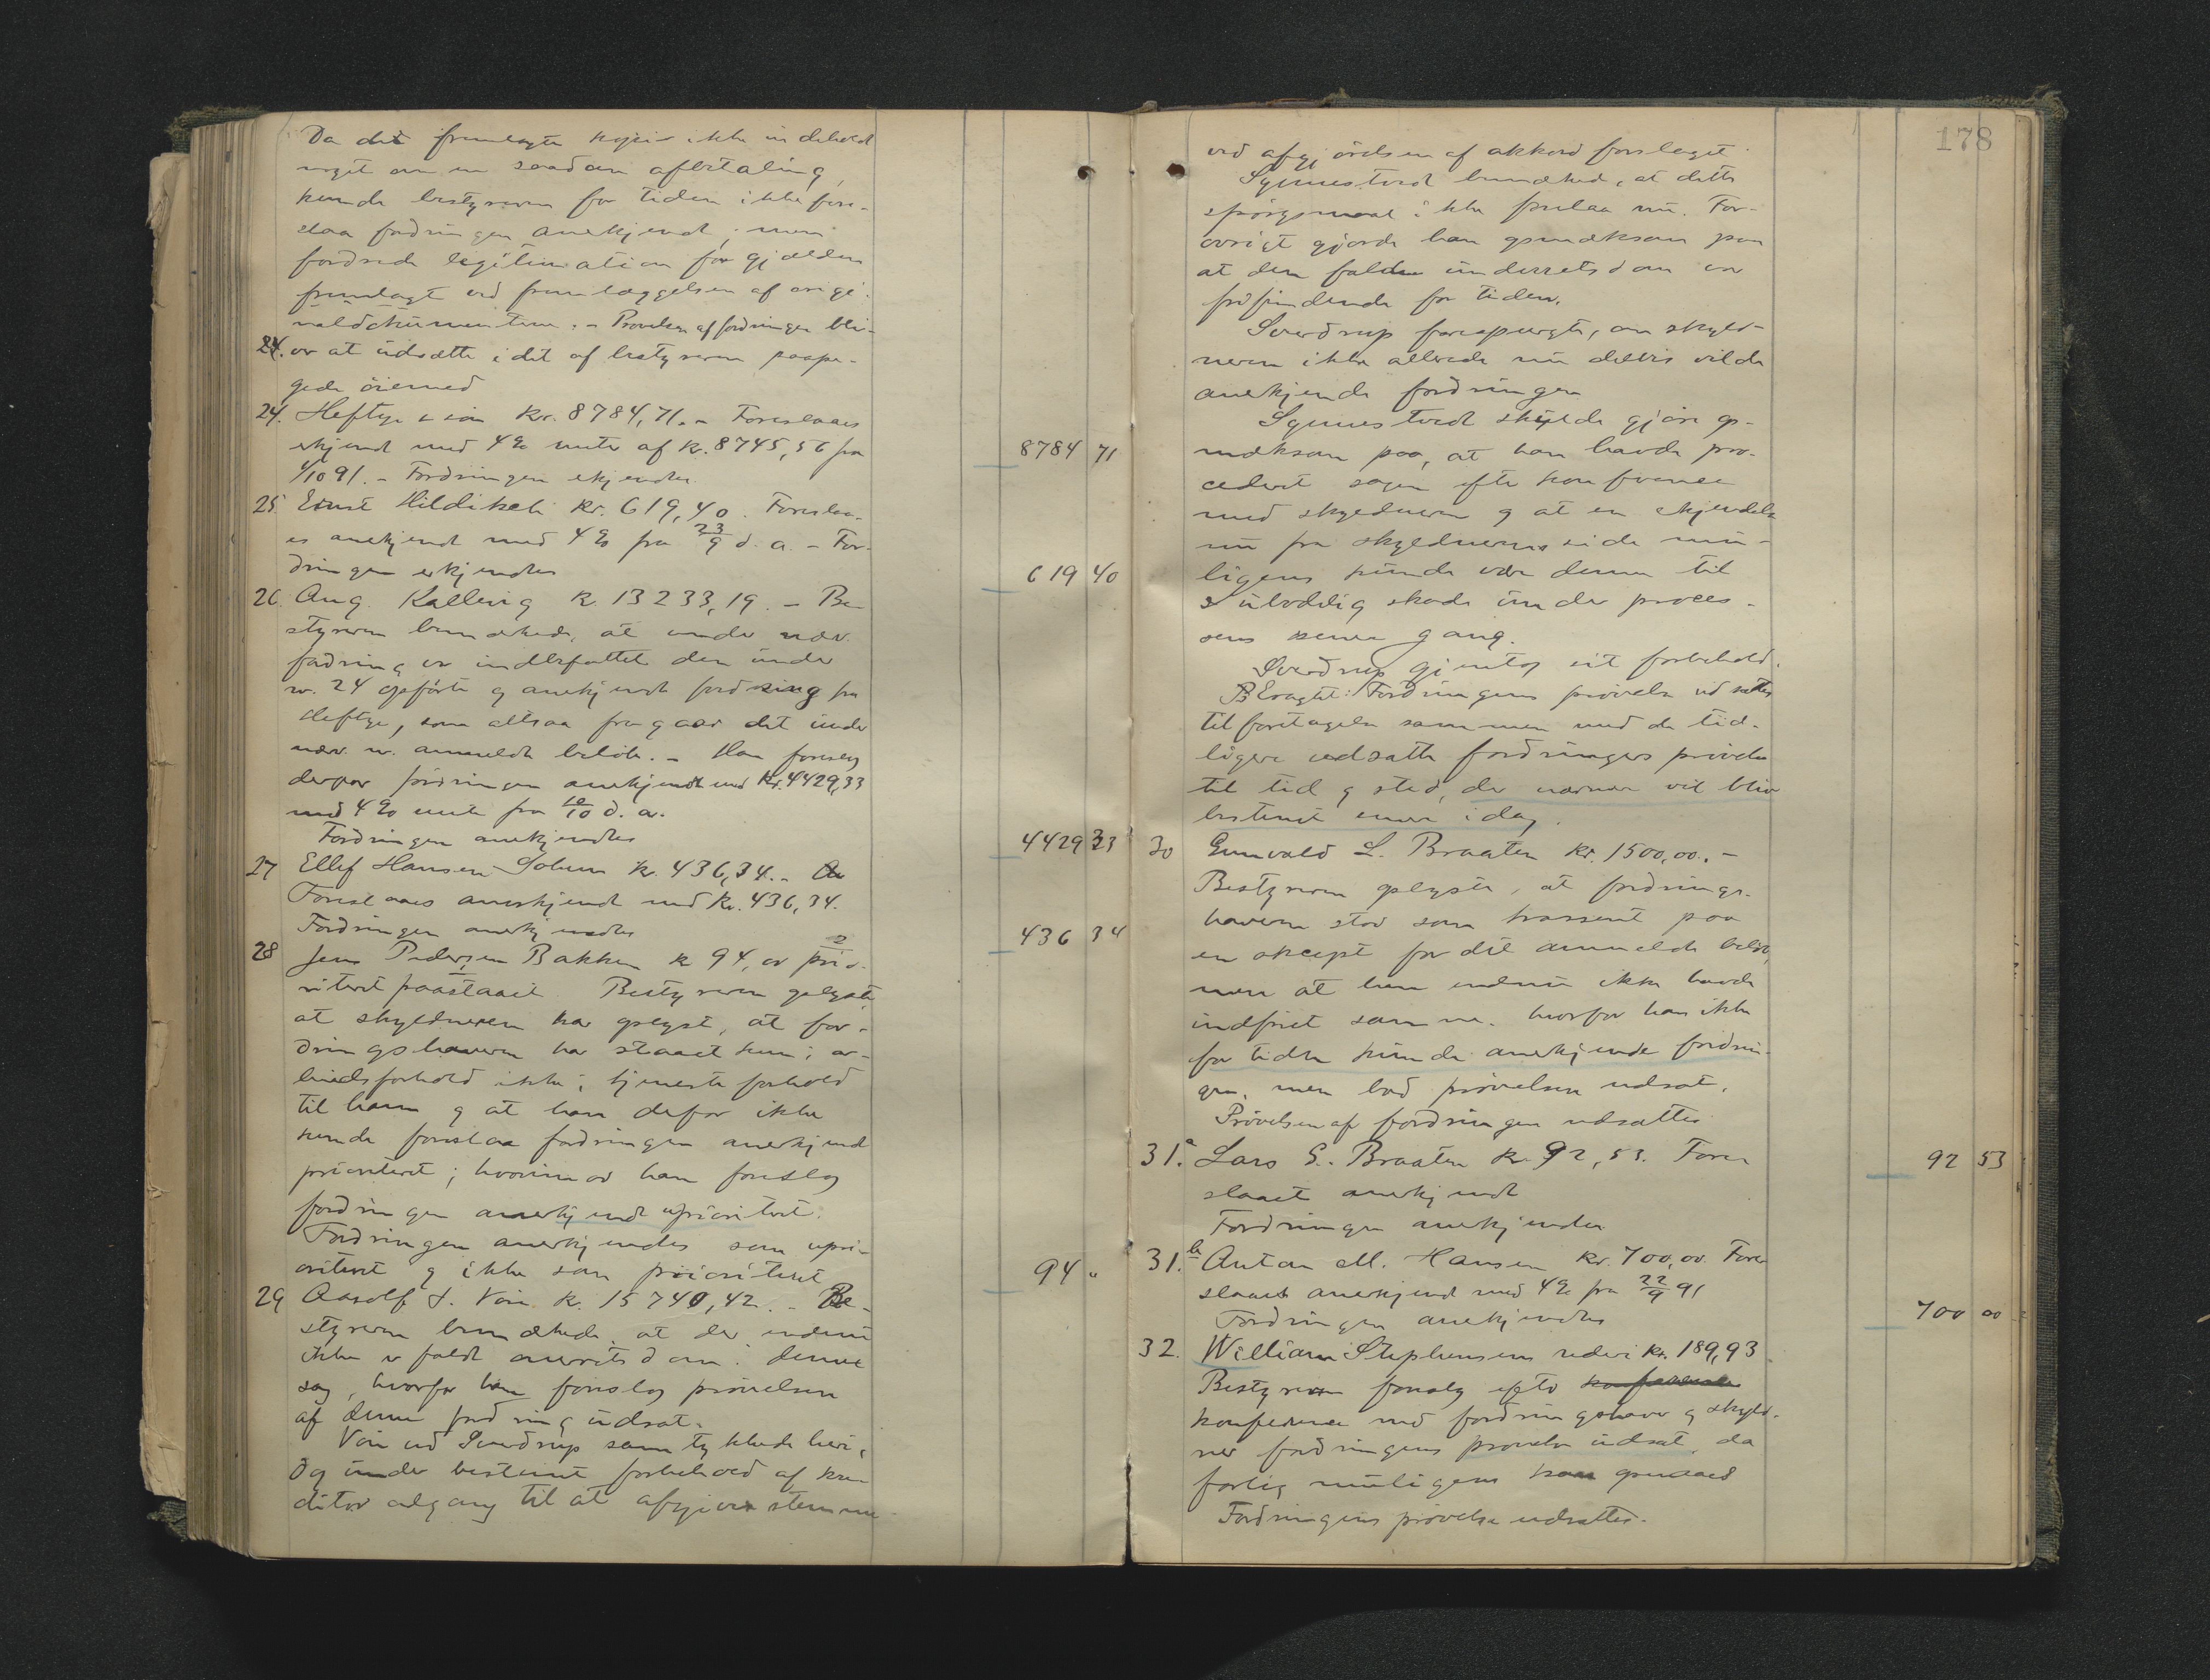 Da det fremlagte kopi ikke indeholdt
noget om en saadan afbetaling,
kunde bestyreren for tiden ikke fore-
slaa fordringen anerkjendt, men
fordrede legitimation for gjælden
fremlagt ved fremlæggelsen af origi-
naldokumenterne. - Prøvelsen af fordringen bli-
24. ver at udsætte i det af bestyreren paape-
gede øiemed
24. Heftye & søn Kr. 8784,71. - Foreslaaes
erkjendt med 4% rente af Kr. 8745,56 fra
1/10 91. - Fordringen erkjendtes
8784 71
25 Ernst Hildisch Kr. 619,40. Foreslaa-
es anerkjendt med 4% fra 23/9 d. a. - For-
dringen erkjendtes
619 40
26. Aug. Kallevig Kr. 13233,19. - Be-
styreren bemærkede, at under nær.
fordring er indbefattet den under
nr. 24 opførte og anerkjendt fordring fra
Heftye, som altsaa fragaar det under
nær. nr. anmeldte beløb. - Han foreslog
derfor fordringen anerkjendt med Kr. 4429,33
med 4% rente fra 10/10 d. a.
Fordringen anerkjendtes
4429 33
27 Ellef Hansen Solum Kr. 436,34. -
Foreslaaes anerkjendt med Kr. 436,34.
Fordringen anerkjendtes
436 34
28 Jens Pedersen Bakken Kr 94, or prio-
riteret paastaaet. Bestyreren oplyste,
at skyldneren har oplyst, at for-
dringshaveren har staaet kun i ar-
beidsforhold ikke i tjenesteforhold
til ham og at han derfor ikke
kunde foreslaa fordringen anerkjendt
prioriteret; hvorimod han foreslog
fordringen anerkjendt uprioriteret.
Fordringen anerkjendes som upri-
oriteret og ikke som prioriteret
94 "
29 Aasolf S. Voie Kr. 15740,42. - Be-
styreren bemærkede, at der endnu
ikke er faldt overretsdom i denne
sag, hvorfor han foreslog prøvelsen
af denne fordring udsat.
Voie ved Sverdrup samtykkede heri,
dog under bestemt forbehold af kre-
ditors adgang til at afgive stemme
178
ved afgjørelsen af akkordforslaget.
Synnestvedt bemærkede, at dette
spørgsmaal ikke forelaa nu. For-
øvrigt gjorde han opmærksom paa
at den faldne underretsdom var
frifindende for tiden.
Sverdrup forespurgte, om skyld-
neren ikke allerede nu delvis vilde
anerkjende fordringen
Synnestvedt skulde gjøre op-
mærksom paa, at han havde pro-
cederet sagen efter konference
med skyldneren og at en erkjendelse
nu fra skyldnerens side mu-
ligens kunde være denne til
ubodelig skade under proces-
sens senere gang.
Sverdrup gjentog sit forbehold.
Eragtet: Fordringens prøvelse udsættes
til foretagelse sammen med de tid-
ligere udsatte fordringers prøvelse
til tid og sted, der nærmere vil blive
bestemt senere idag.
30 Gunvald L. Braaten Kr. 1500,00. -
Bestyreren oplyste, at fordrings-
haveren stod som trassent paa
en akcept for det anmeldte beløb,
men at han endnu ikke havde
indfriet samme. hvorfor han ikke
for tiden kunde anerkjende fordrin-
gen, men bad prøvelsen udsat.
Prøvelsen af fordringen udsattes
31.a Lars G. Braaten Kr 92,53. Fore-
slaaet anerkjendt
Fordringen anerkjendes
92 53
31.b Anton M. Hansen Kr. 700,00. Fore-
slaaet anerkjendt med 4% fra 22/9 91
Fordringen anerkjendtes
700 00
32. William Stephensens rederi Kr. 189,93
Bestyreren foreslog efter
konference med fordringshaver og skyld-
ner fordringens prøvelse udsat, da
forlig muligens kan opnaaes
Fordringens prøvelse udsattes.